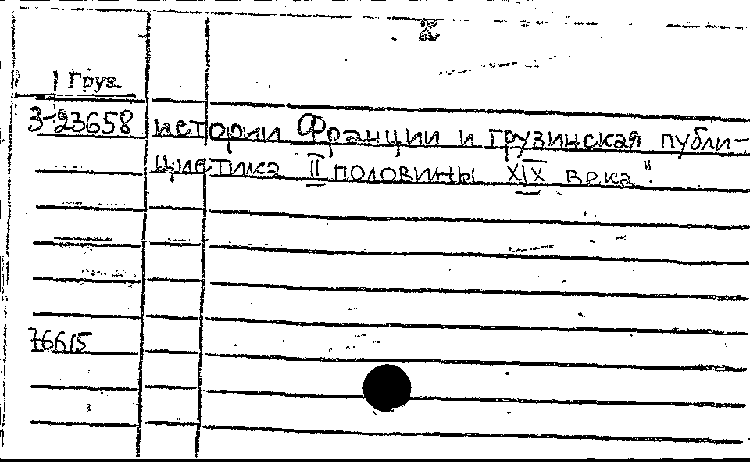 2
Груз
3-23658 истории Франции и грузинская публи-
цистика II половины XIX века".
76615